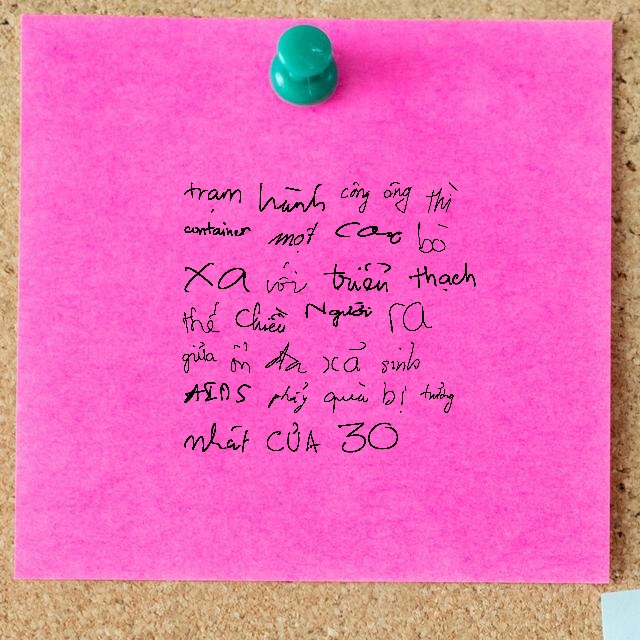 trạm hành công ông thì
container một cao bò
xa với triển thạch
thế chiều Người ra
giữa ổn đa xả sinh
AIDS quà bị tưởng
nhất CỦA 30